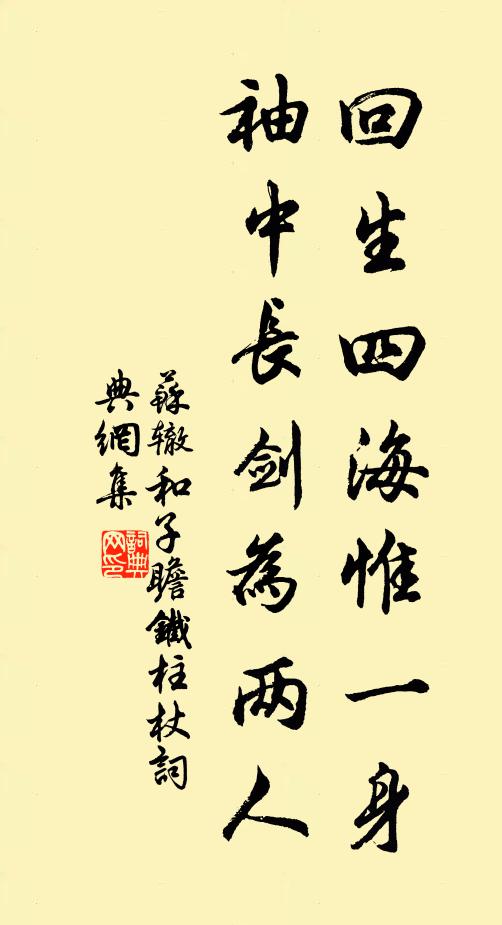 回生四海惟一身
袖中長劍為两人
蘇辙和子瞻鐵柱杖詞
典網集
詞典网印